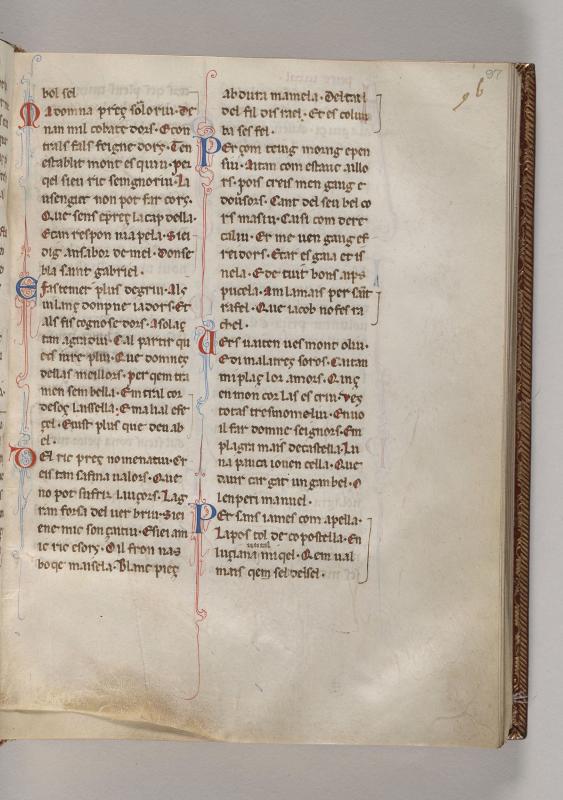 97
96
bol sel
Madomna preç soloriu. De
nan mil cobate dors. Econ
trals fals feigne dory. Ten
establit mont es quiu. per
qel sieu ric seingnoriu. La
usengier non pot far cors.
Que sens
la cap della.
Etan respon na pela. Siei
dig an sabor de mel. Donse
bla saint gabriel.
Efastener plus degriu. Als
Et
als fis cognose dors. Asolaç
tan agradiu. Cal partir qu
eis iure pliu. Que domneç
dellas meillors. per qem tra
men sembella. Em tral cor
desoç laissella. Emalial est
çel. Euist plus que deu ab
el.
Del ric preç nomenatiu. Er
eis tan safina ualors. Que
no pot sufrir lauçors. Lag
ran forsa del uer briu. Siei
enemic son çaitiu. Esiei am
ic ric esors. Oil fron nas
boqe maisela. Blanc pieç
ab dura mamela. Del tail
del fil dis rael. Et es colum
ba ses fel.
Per çom teing morng e pen
siu. Aitan com estauc aillo
rs. pois creis men gaug e
douisors. Cant del seu bel co
rs mas iu. Caisi com dere
caliu. Er me uen gaug ef
reidors. Etar es gaia et is
nela. Ede tuit bons aips
pucela. Am lamais per sait
rafel. Que iacob no fes ra
chel.
Uers uaiten ues mont oliu.
Edi malas treç soros. Caitan
mi plaç lor amors. Qainç
en mon cor las escriu. Ves
totas tres nomeliu. Enuo
il far domne seignors. Em
plagra mais de castella. Lu
na pauca iouen cella. Que
daur cargat un gambel. O
lenperi manuel.
Per sans iames com apella.
Lapostol de copostella. En
luçiana miqel. Qem ual
mais qem sel delsel.